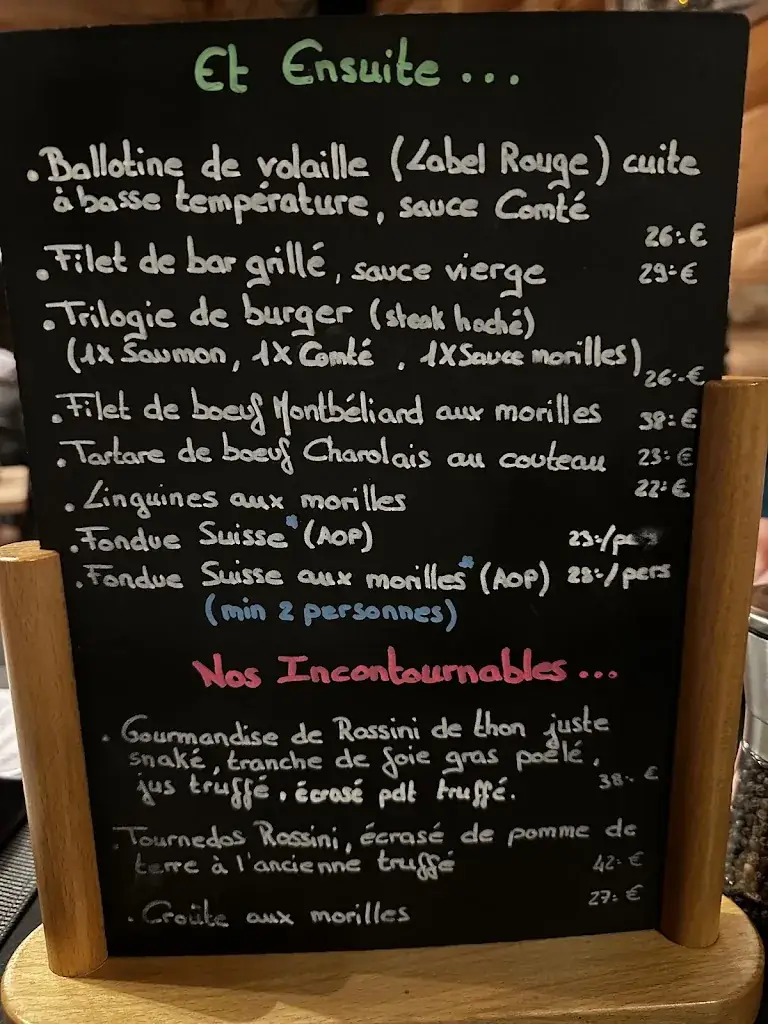 Et Ensuite ...
. Ballotine de volaille (Label Rouge) cuite
à basse température, sauce Comté
26.-€
. Filet de bar grillé, sauce vierge 29.-€
. Trilogie de burger (steak haché)
(1x Saumon, 1x Comté, 1x Sauce morilles)
26.-€
. Filet de boeuf Montbéliard aux morilles 38.-€
. Tartare de boeuf Charolais au couteau 23.-€
. Linguines aux morilles 22.-€
. Fondue Suisse* (AOP) 23.-/pers
. Fondue Suisse aux morilles* (AOP) 28.-/pers
(min 2 personnes)
Nos Incontournables ...
. Gourmandise de Rossini de thon juste
snaké, tranche de foie gras poêlé,
jus truffé, écrasé pdt truffé. 38.- €
. Tournedos Rossini, écrasé de pomme de
terre à l'ancienne truffé 42.- €
. Croûte aux morilles 27.- €